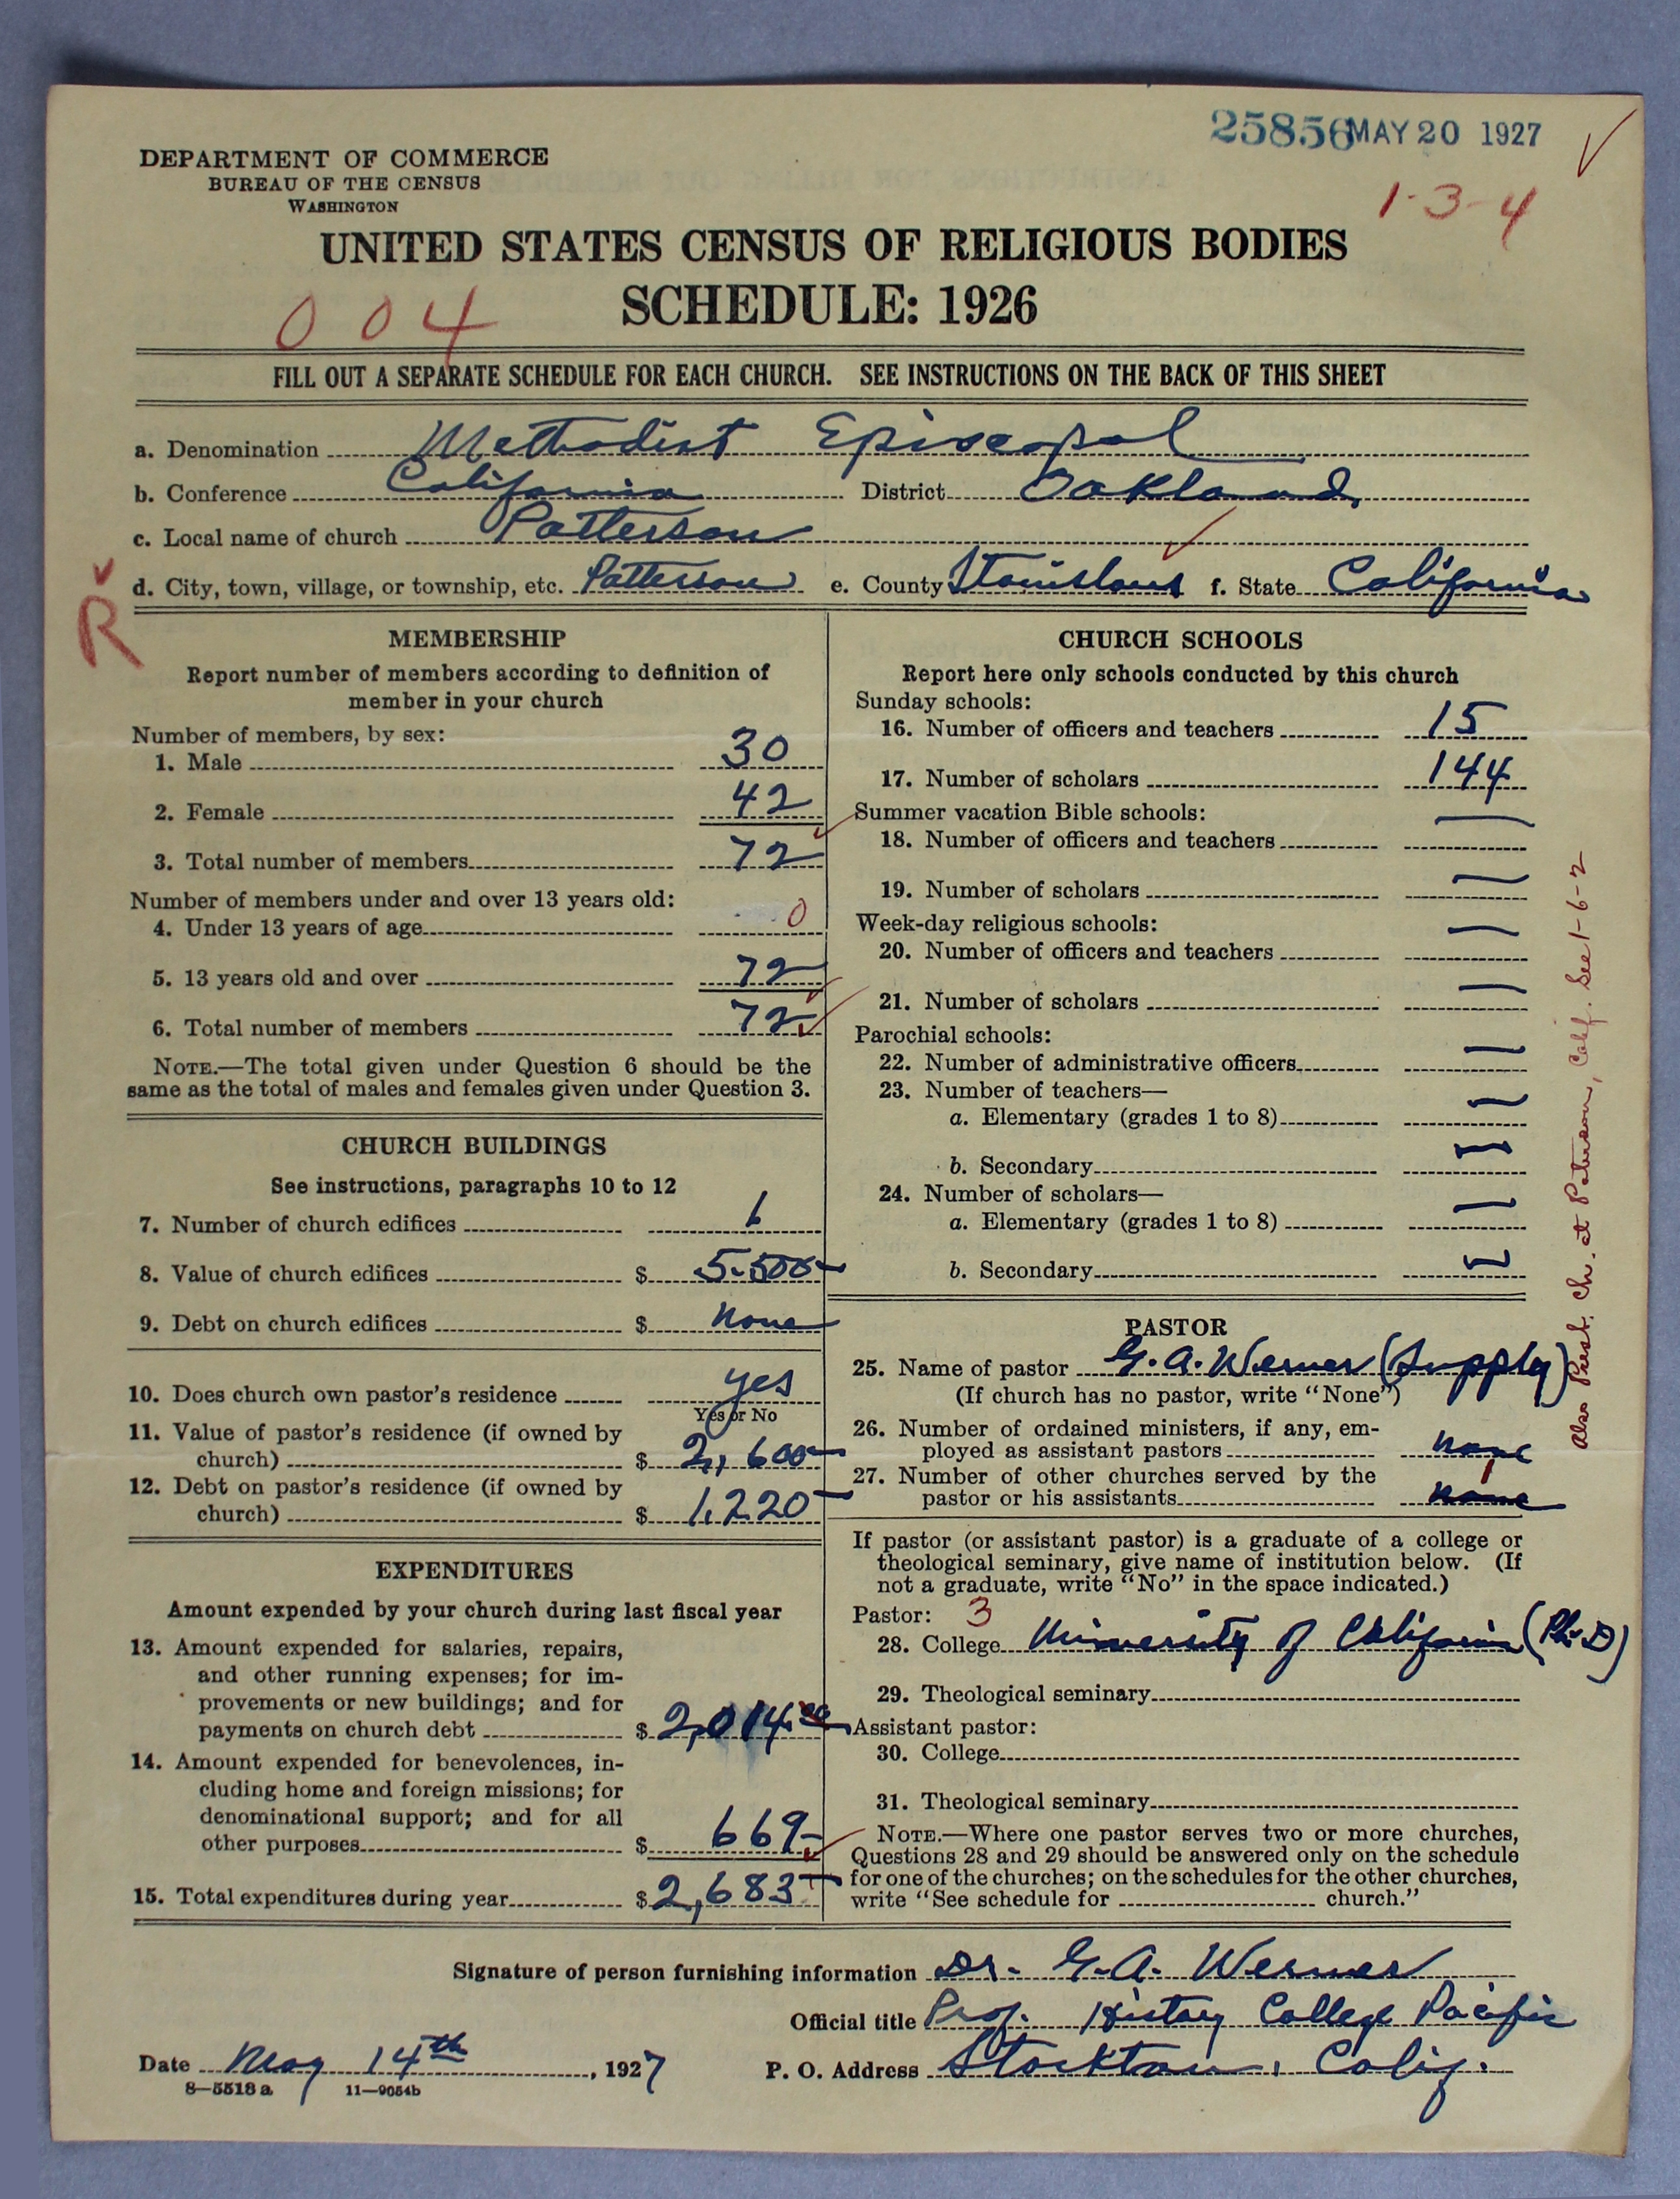 25856 MAY 20 1927
DEPARTMENT OF COMMERCE
BUREAU OF THE CENSUS
WASHINGTON
1-3-4
UNITED STATES CENSUS OF RELIGIOUS BODIES
SCHEDULE: 1926
004
FILL OUT A SEPARATE SCHEDULE FOR EACH CHURCH. SEE INSTRUCTIONS ON THE BACK OF THIS SHEET
a. Denomination Methodist Episcopal
b. Conference California District Oakland
c. Local name of church Patterson
d. City, town, village, or township, etc. Patterson e. County Stanislaus f. State California
R
MEMBERSHIP
Report number of members according to definition of
member in your church
Number of members, by sex:
1. Male 30
2. Female 42
3. Total number of members 72
Number of members under and over 13 years old:
4. Under 13 years of age 0
5. 13 years old and over 72
6. Total number of members 72
NOTE.—The total given under Question 6 should be the
same as the total of males and females given under Question 3.
CHURCH BUILDINGS
See instructions, paragraphs 10 to 12
7. Number of church edifices 1
8. Value of church edifices $ 5500-
9. Debt on church edifices $ None
10. Does church own pastor's residence yes
Yes or No
11. Value of pastor's residence (if owned by
church) $ 2,600-
12. Debt on pastor's residence (if owned by
church) $ 1,220-
EXPENDITURES
Amount expended by your church during last fiscal year
13. Amount expended for salaries, repairs,
and other running expenses; for im-
provements or new buildings; and for
payments on church debt $ 2,014.00
14. Amount expended for benevolences, in-
cluding home and foreign missions; for
denominational support; and for all
other purposes $ 669-
15. Total expenditures during year $ 2,683-
CHURCH SCHOOLS
Report here only schools conducted by this church
Sunday schools:
16. Number of officers and teachers 15
17. Number of scholars 144
Summer vacation Bible schools:
18. Number of officers and teachers —
19. Number of scholars —
Week-day religious schools:
20. Number of officers and teachers —
21. Number of scholars —
Parochial schools:
22. Number of administrative officers —
23. Number of teachers—
a. Elementary (grades 1 to 8) —
b. Secondary —
24. Number of scholars—
a. Elementary (grades 1 to 8) —
b. Secondary —
PASTOR
25. Name of pastor G. A. Werner (Supply)
(If church has no pastor, write "None")
26. Number of ordained ministers, if any, em-
ployed as assistant pastors none
27. Number of other churches served by the
pastor or his assistants none 1
If pastor (or assistant pastor) is a graduate of a college or
theological seminary, give name of institution below. (If
not a graduate, write "No" in the space indicated.)
Pastor: 3
28. College University of California (Ph-D)
29. Theological seminary
Assistant pastor:
30. College
31. Theological seminary
NOTE.—Where one pastor serves two or more churches,
Questions 28 and 29 should be answered only on the schedule
for one of the churches; on the schedules for the other churches,
write "See schedule for church."
Also Presb. Ch. at Paterson, Calif. See 1-6-2
Signature of person furnishing information Dr. G. A. Werner
Official title Prof. History College Pacific
Date May 14th, 1927 P. O. Address Stockton, Calif.
8—5518 a 11—9054b